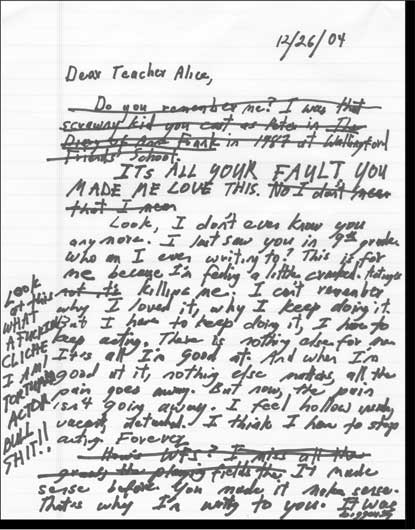 12/26/04
Dear Teacher Alice,
Do you remember me? I was that
scrawny kid you cast as Peter in The
Diary of Anne Frank in 1987 at Wallingford
Friends' School.
ITS ALL YOUR FAULT YOU
MADE ME LOVE THIS. No I don't mean
that I mean
Look, I don't even know you
anymore. I last saw you in 9th grade
who am I even writing to? This is for
me because I'm feeling a little
not its killing me. I can't remember
why I loved it, why I keep doing it.
But I have to keep doing it, I have to
keep acting. There is nothing else for me
It's all I'm good at. And when I'm
good at it, nothing else matters, all the
pain goes away. But now, the pain
isn't going away. I feel hollow
vacant, I think I have to stop
acting Forever
How's WFS? I miss all the
the playing fields the, It made
sense before. You made it make sense.
That's why I'm writing to you. It was
Look
at this
WHAT
A FUCKING
CLICHE
I AM!
TORTURED
ACTOR
BULL
SHIT!!